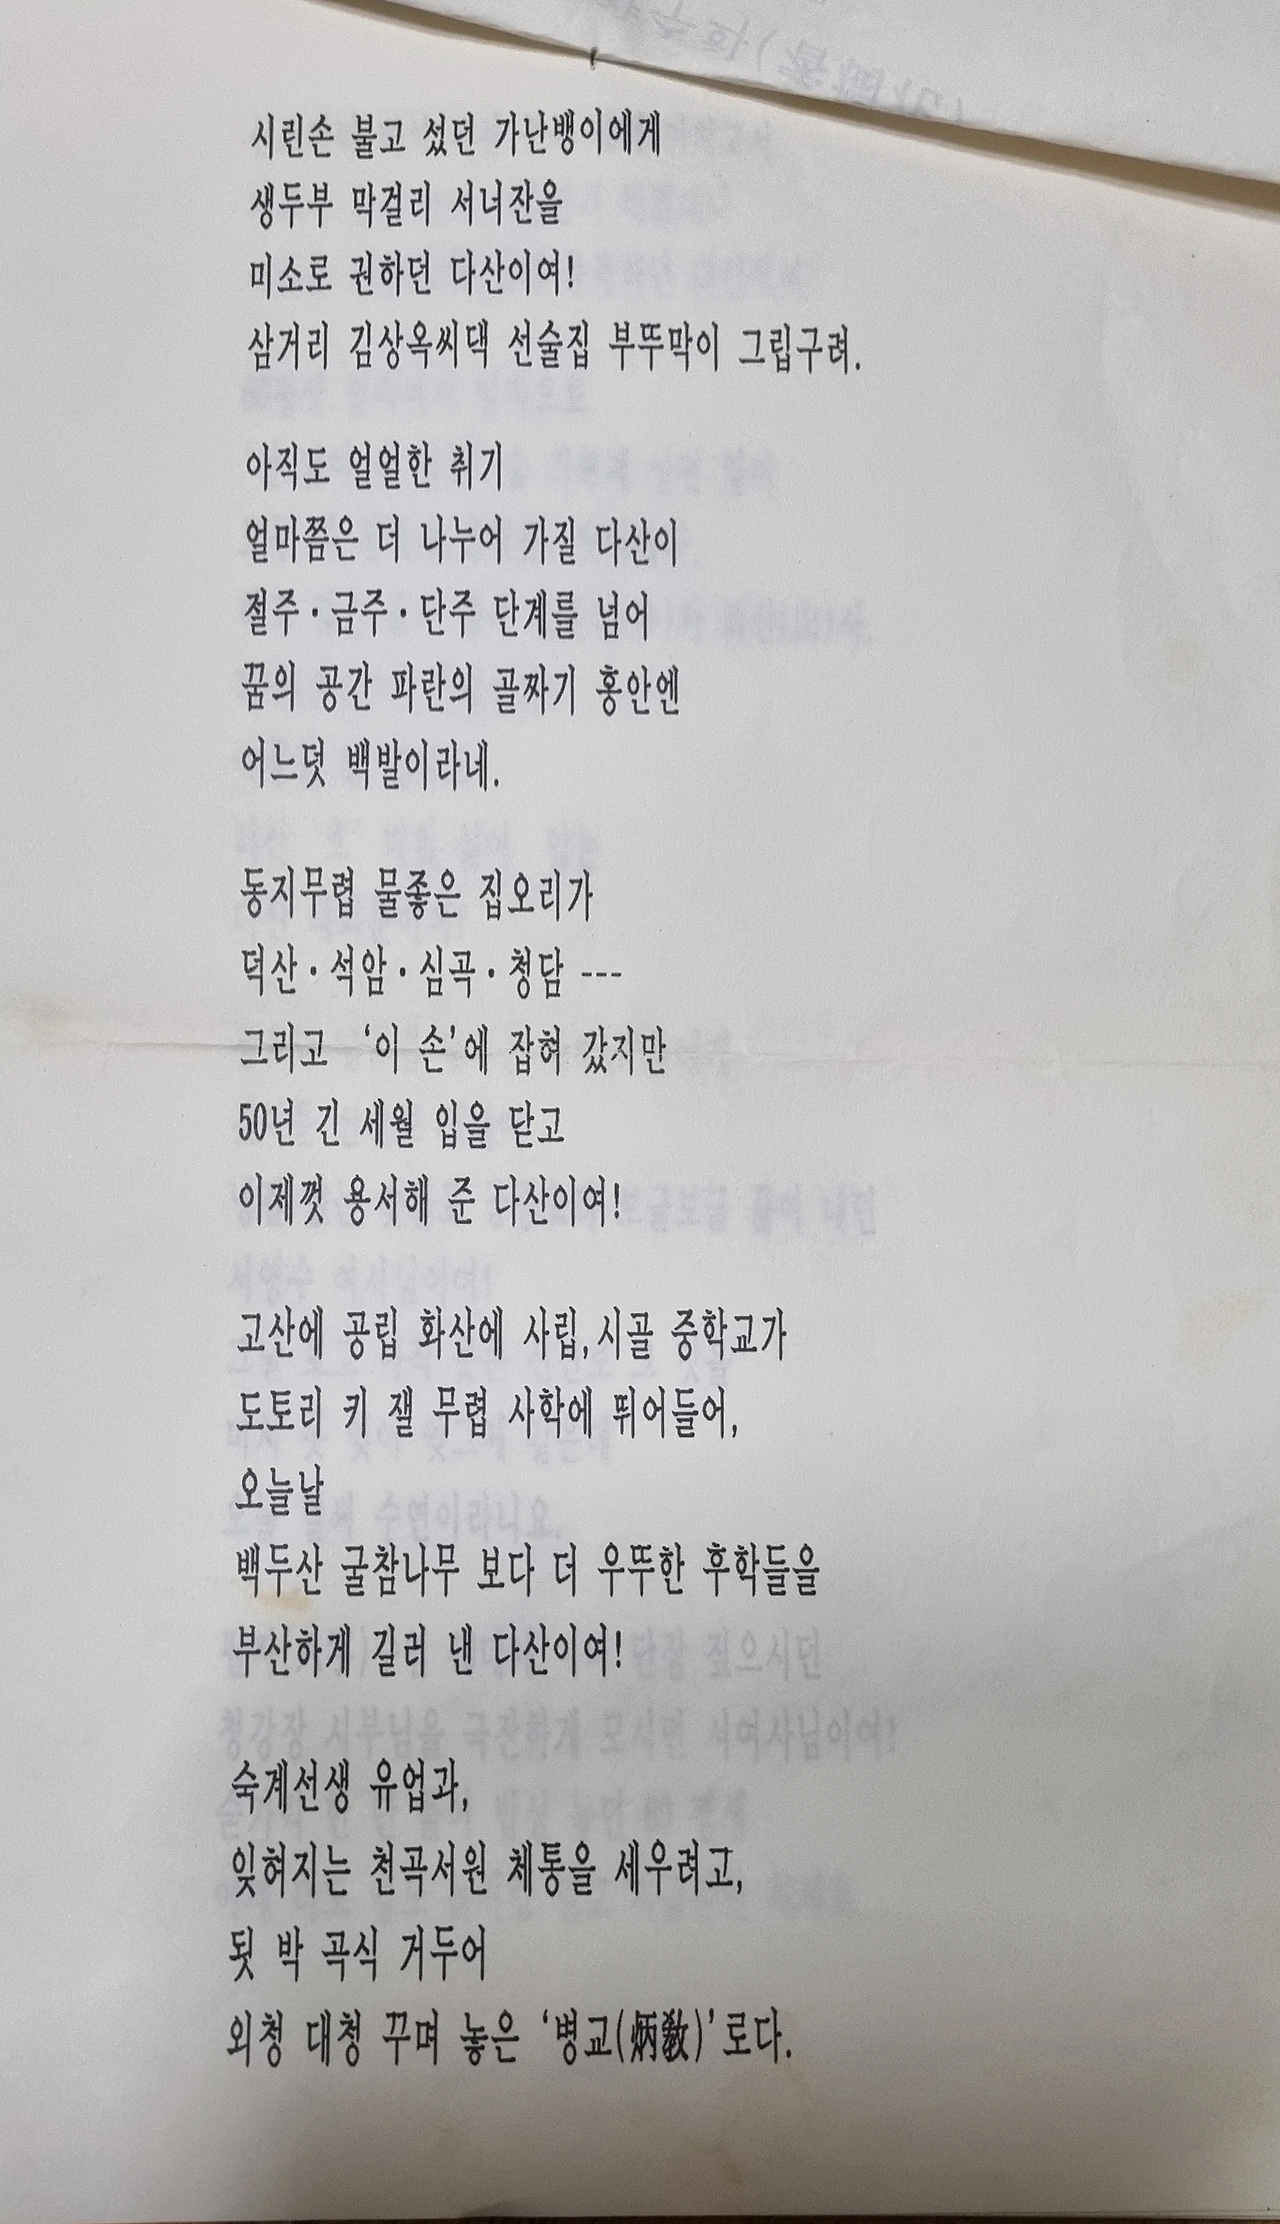 시린손 불고 섰던 가난뱅이에게
생두부 막걸리 서너잔을
미소로 권하던 다산이여!
삼거리 김상옥씨댁 선술집 부뚜막이 그립구려.
아직도 얼얼한 취기
얼마쯤은 더 나누어 가질 다산이
절주·금주·단주 단계를 넘어
꿈의 공간 파란의 골짜기 홍안엔
어느덧 백발이라네.
동지무렵 물좋은 집오리가
덕산·석암·심곡·청담 ---
그리고 ‘이 손’에 잡혀 갔지만
50년 긴 세월 입을 닫고
이제껏 용서해 준 다산이여!
고산에 공립 화산에 사립, 시골 중학교가
도토리 키 잴 무렵 사학에 뛰어들어,
오늘날
백두산 굴참나무 보다 더 우뚜한 후학들을
부산하게 길러 낸 다산이여!
숙계선생 유업과,
잊혀지는 천곡서원 체통을 세우려고,
됫 박 곡식 거두어
외청 대청 꾸며 놓은 ‘병교(炳敎)’로다.